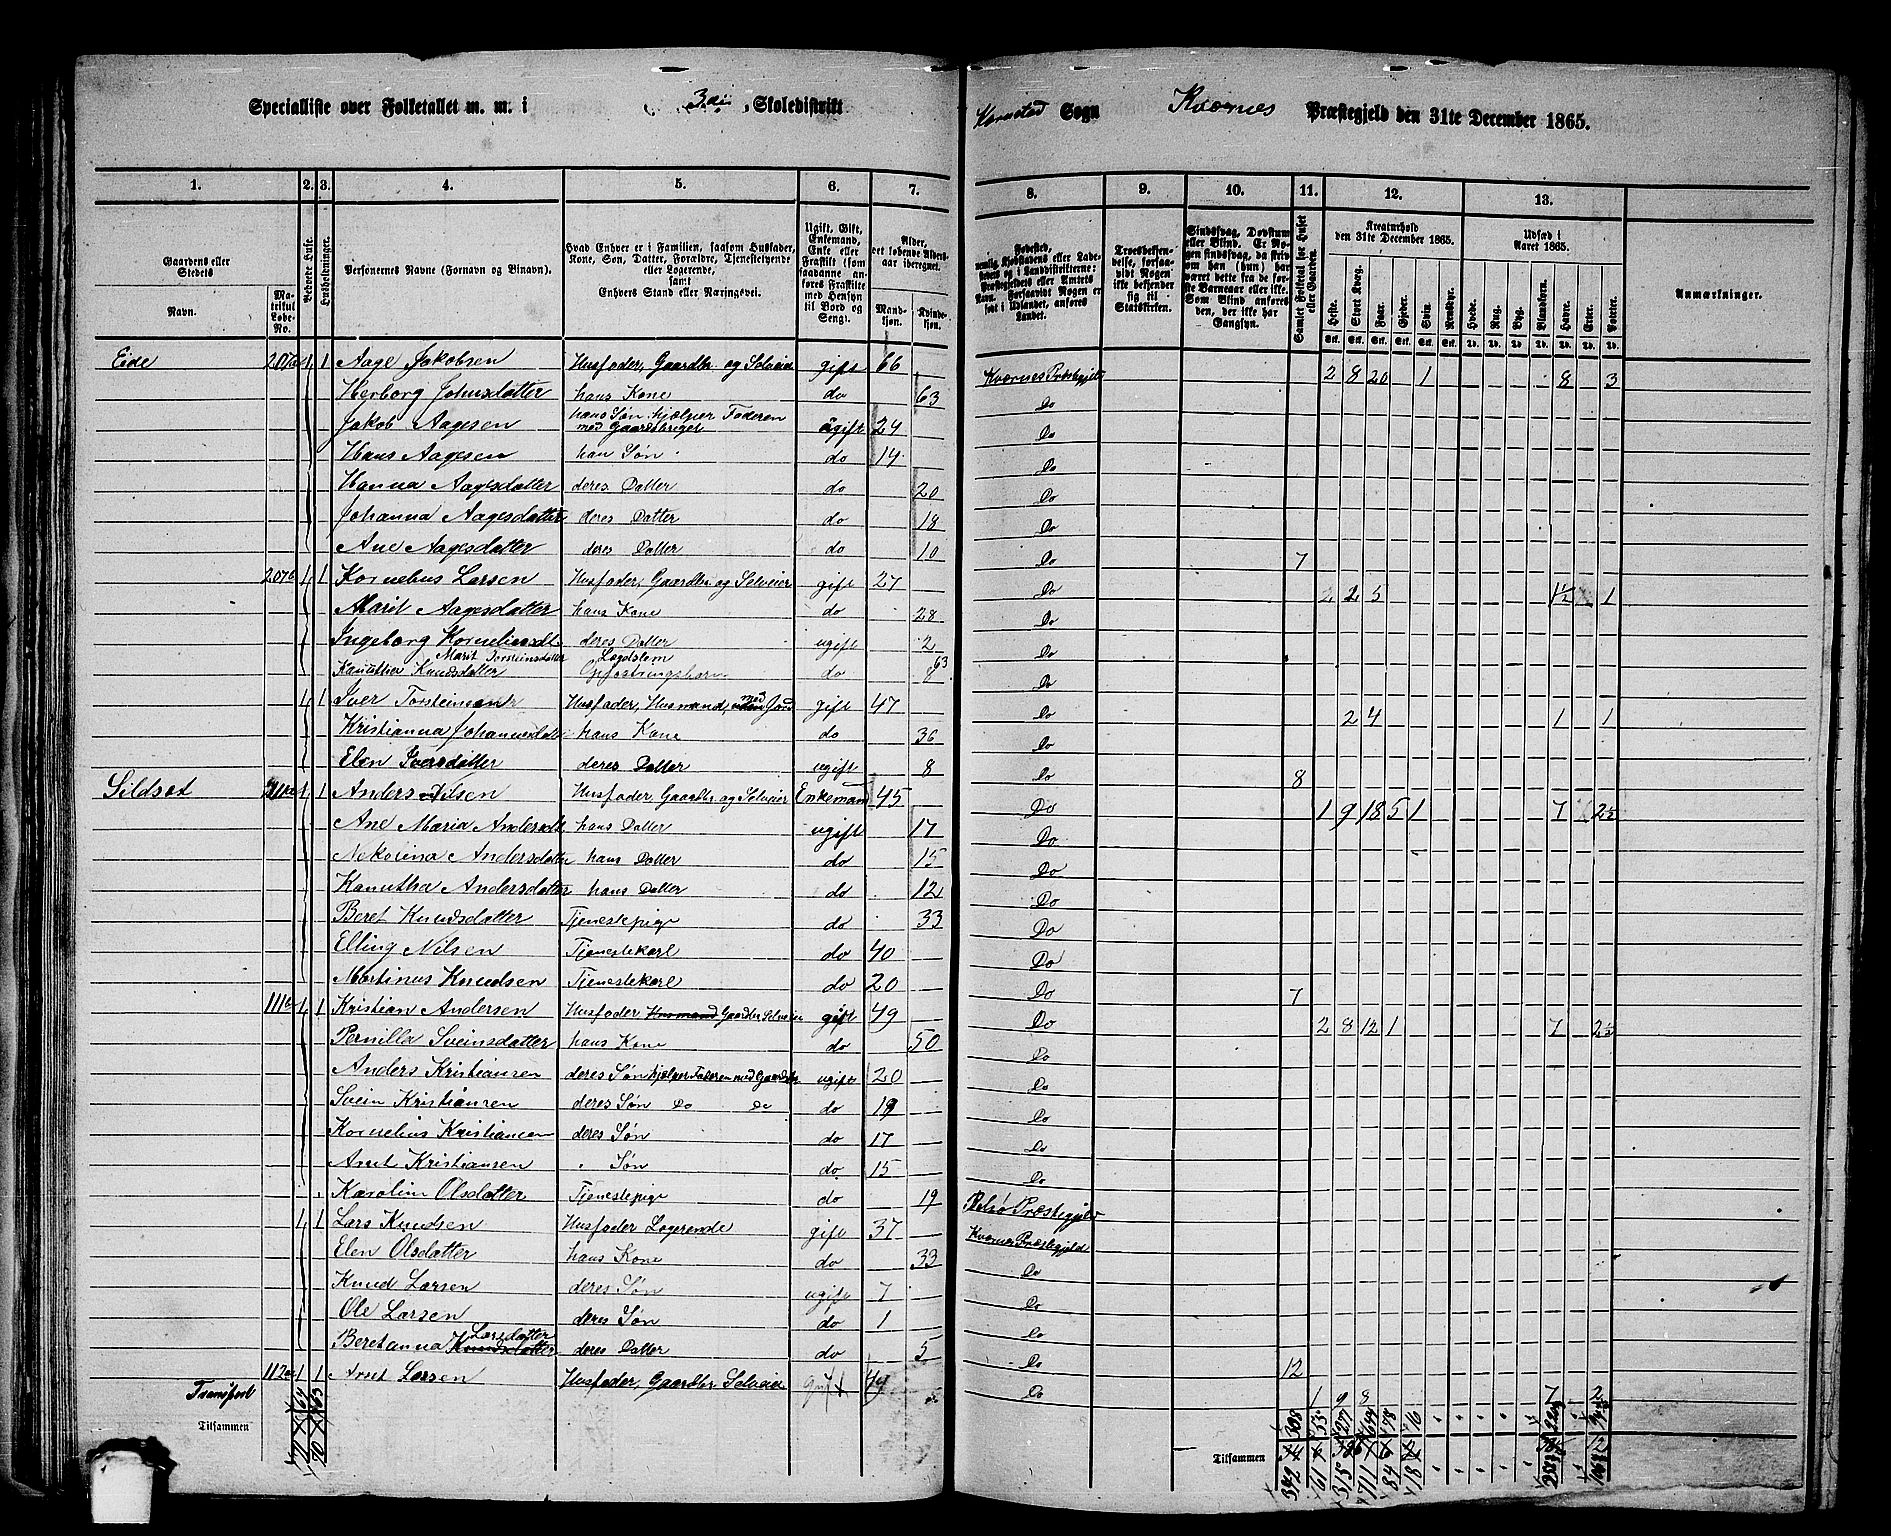 Specialliste over Folketallet m. m. i 3die Skoledistrikt Kornstad Sogn Kvernes Præstegjeld den 31te December 1865.
1. 2. 3. 4. 5. 6. 7. 8. 9. 10. 11. 12. 13.
Gaardens eller Stedets
Navn. Matrikul Løbe-No.
Beboede Huse.
Husholdninger.
Personernes Navne (Fornavn og Tilnavn).
Hvad Enhver er i Familien, saasom Husfader, Kone, Søn, Datter, Forældre, Tjenestetyende eller Logerende, samt Enhvers Stand eller Næringsvei.
Ugift, Gift, Enkemand, Enke eller Fraskilt (som saadanne anføres Fraskilte med Hensyn til Bord og Seng).
Alder, det løbende Alders-aar iberegnet.
Mandkjøn. Kvindekjøn.
Troesbekjendelse, forsaavidt Nogen ikke bekjender sig til Statskirken.
Sindssvag, Døvstum eller Blind.
Samlet Folketal for Huset eller Gaarden.
Kreaturhold den 31te December 1865.
Udsæd i Aaret 1865.
Heste. Stort Kvæg. Faar. Gjeder. Svin. Rensdyr. Hvede. Rug. Byg. Blandkorn. Havre. Erter. Poteter.
Anmærkninger.
Eide 207a 1 1 Aage Jakobsen Husfader, Gaardbr. og Selveier gift 66 Kvernes Præstegjeld 2 8 20 1 8 3
Herborg Johnsdatter hans Kone do 63 Do
Jakob Aagesen hans Søn, hjælper Faderen med Gaardbruget ugift 24 Do
Hans Aagesen han Søn do 14 Do
Hanna Aagesdatter deres Datter do 20 Do
Johanna Aagesdatter deres Datter do 18 Do
Ane Aagesdatter deres Datter do 10 Do 7
207b 1 1 Kornelius Larsen Husfader, Gaardbr. og Selveier gift 27 Do 2 2 5 1½ 1
Marit Aagesdatter hans Kone do 28 Do
Ingeborg Korneliusdt. deres Datter ugift 2 Do
Marit Torsteinsdatter Lægdslem 63
Kanutha Knudsdatter Opfostringsbarn do 8 Do
1 1 Iver Torsteinsen Husfader, Husmand, med Jord gift 47 Do 2 4 1 1
Kristianna Johannesdatt. hans Kone do 36 Do
Elen Iversdatter deres Datter ugift 8 Do 8
Sildset 111a 1 1 Anders Nilsen Husfader, Gaardbr. og Selveier Enkemand 45 Do 1 9 18 5 1 7 2½
Ane Maria Andersdt. hans Datter ugift 17 Do
Nekolina Andersdatter hans Datter do 15 Do
Kanutha Andersdatter hans Datter do 12 Do
Beret Knudsdatter Tjenestepige do 33 Do
Elling Nilsen Tjenestekarl do 40 Do
Martinus Knudsen Tjenestekarl do 20 Do 7
111b 1 1 Kristian Andersen Husfader, Husmand Gaardbr. Selveier gift 49 Do 2 8 12 1 7 2½
Pernilla Sveinsdatter hans Kone do 50 Do
Anders Kristiansen deres Søn hjælper Faderen med Gaardsbr. ugift 20 Do
Svein Kristiansen deres Søn Do Do do 19 Do
Kornelius Kristiansen deres Søn do 17 Do
Arnt Kristiansen " Søn do 15 Do
Karolin Olsdatter Tjenestepige do 19 Bolsø Præstegjeld
1 1 Lars Knudsen Husfader Logerende gift 37 Kvernes Præstegjeld
Elen Olsdatter hans Kone do 33 Do
Knud Larsen deres Søn ugift 7 Do
Ole Larsen deres Søn do 1 Do
Beretanna Knudsdatter Larsdatter deres Datter do 5 Do 12
112a 1 1 Arnt Larsen Husfader, Gaardbr. Selveier gift 49 Do 1 9 8 7 2
Transport
Tilsammen
Tilsammen 392 61 315 711 84 18